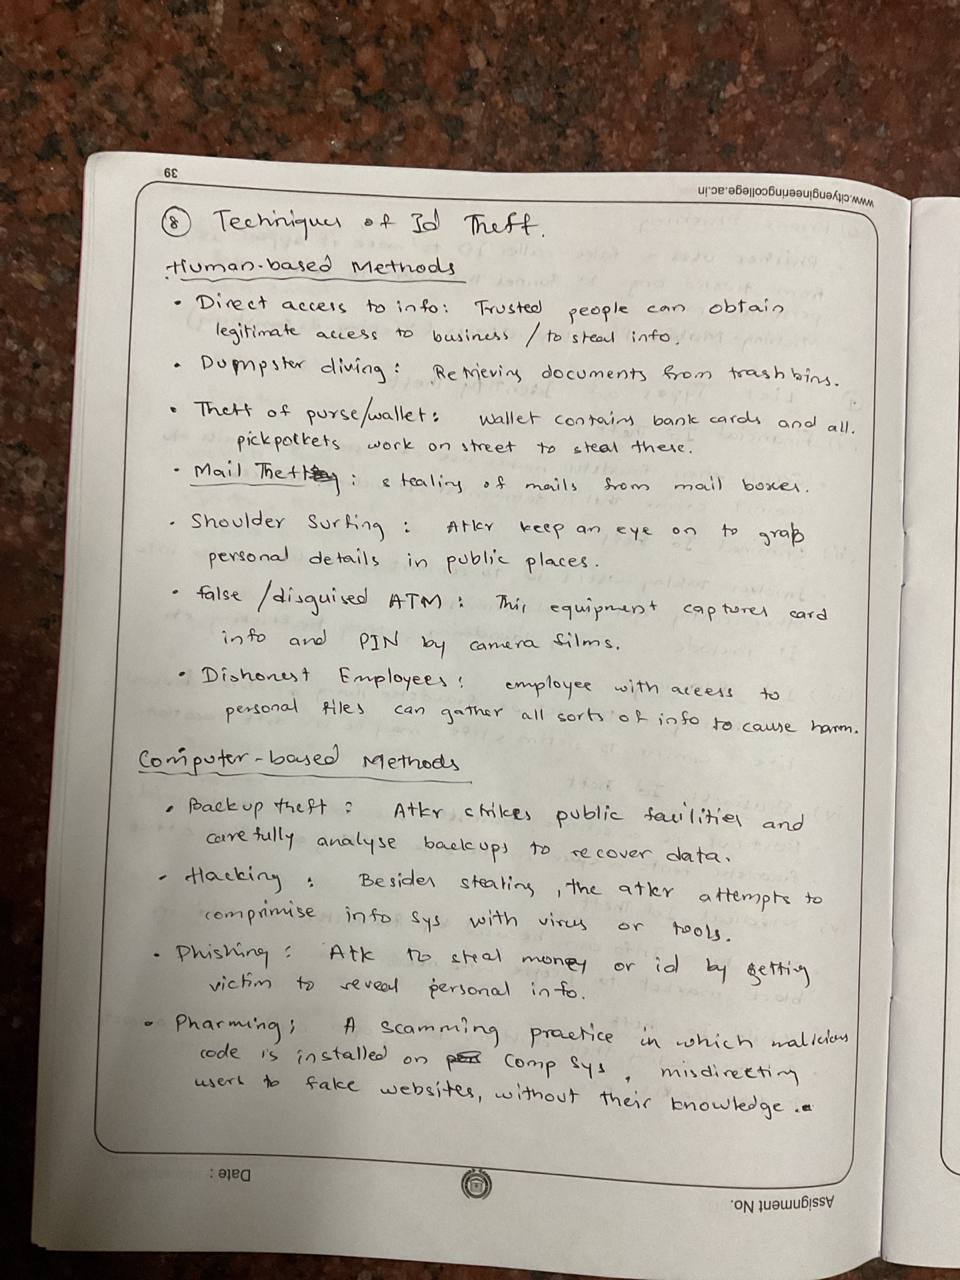 39
www.cityengineeringcollege.ac.in
8 Techniques of Id Theft.
Human-based Methods
• Direct access to info: Trusted people can obtain
legitimate access to business / to steal info.
• Dumpster diving: Retrieving documents from trash bins.
• Theft of purse/wallet: wallet contains bank cards and all.
pickpockets work on street to steal these.
• Mail Theft : stealing of mails from mail boxes.
• Shoulder Surfing : Atkr keep an eye on to grab
personal details in public places.
• false /disguised ATM : This equipment captures card
info and PIN by camera films.
• Dishonest Employees: employee with access to
personal files can gather all sorts of info to cause harm.
Computer-based Methods
• Backup theft : Atkr strikes public facilities and
carefully analyse backups to recover data.
- Hacking : Besides stealing, the atker attempts to
comprimise info sys with virus or tools.
• Phishing : Atk to steal money or id by getting
victim to reveal personal info.
• Pharming; A scamming practice in which malicious
code is installed on comp sys, misdirecting
users to fake websites, without their knowledge.
Date :
Assignment No.